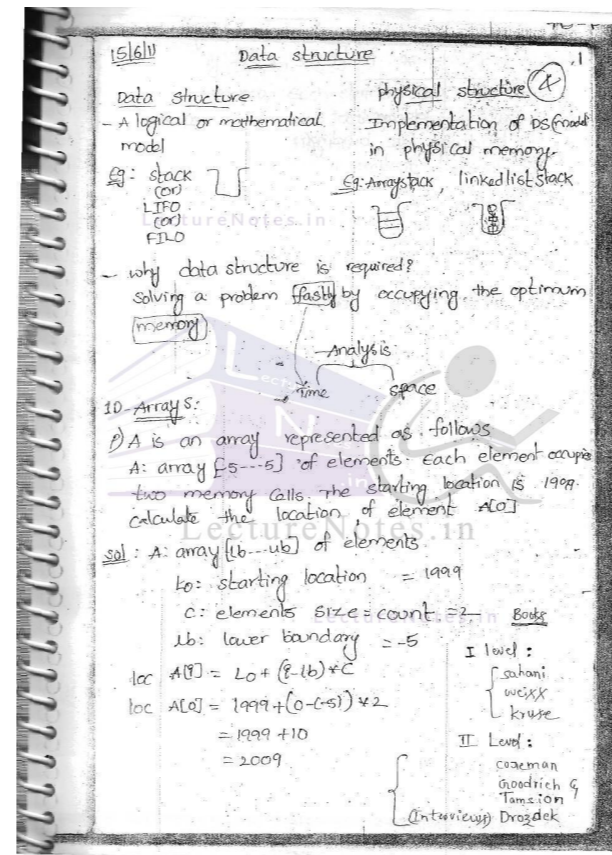 15/6/11 Data structure 1
Data structure
- A logical or mathematical
model
Eg: stack
(or)
LIFO
(or)
FILO
physical structure 4
Implementation of DS(model)
in physical memory.
Eg: Arraystack, linkedlist stack
LectureNotes.in
- why data structure is required?
solving a problem fastly by occupying the optimum
memory
Analysis
Time space
1D-Arrays:
P) A is an array represented as follows
A: array [-5---5] of elements. Each element occupies
two memory Calls. The starting location is 1999.
calculate the location of element A[0]
LectureNotes.in
sol: A: array [lb---ub] of elements
Lo: starting location = 1999
C: elements size = count = 2
lb: lower boundary = -5
loc A[i] = Lo + (i-lb)*C
loc A[0] = 1999+(0-(-5))*2
= 1999 +10
= 2009
Books
I level:
sahani
weixx
kruse
II Level:
coreman
Goodrich &
Tamsion
(Interviews) Drozdek